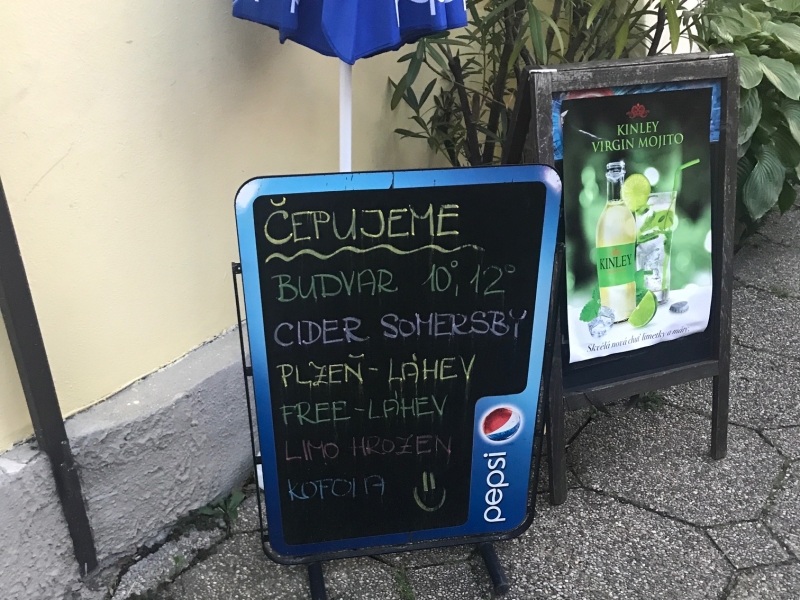 ČEPUJEME
BUDVAR 10°, 12°
CIDER SOMERSBY
PLZEŇ - LÁHEV
FREE - LÁHEV
LIMO HROZEN
KOFOLA
pepsi
KINLEY
VIRGIN MOJITO
KINLEY
Skvělá nová chuť limetky a máty.